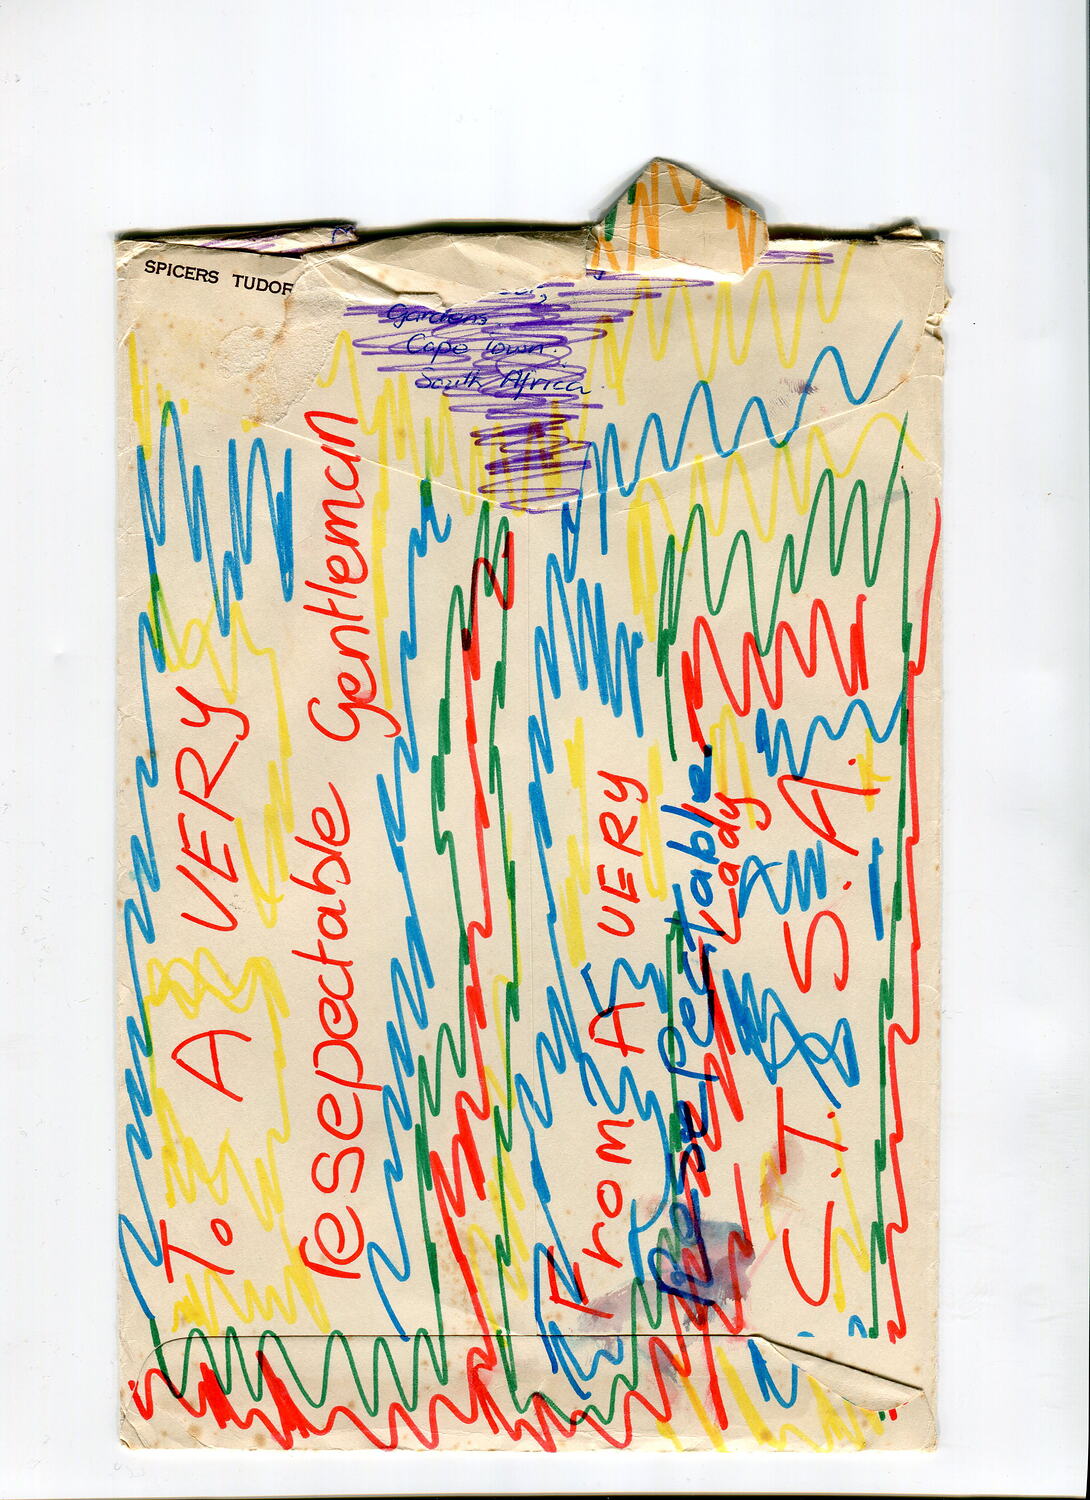 SPICERS TUDOR
Gardens
Cape Town.
South Africa.
To A VERY
reSepectable Gentleman
From A VERY
ResepecTable
Lady
C.T. S.A.